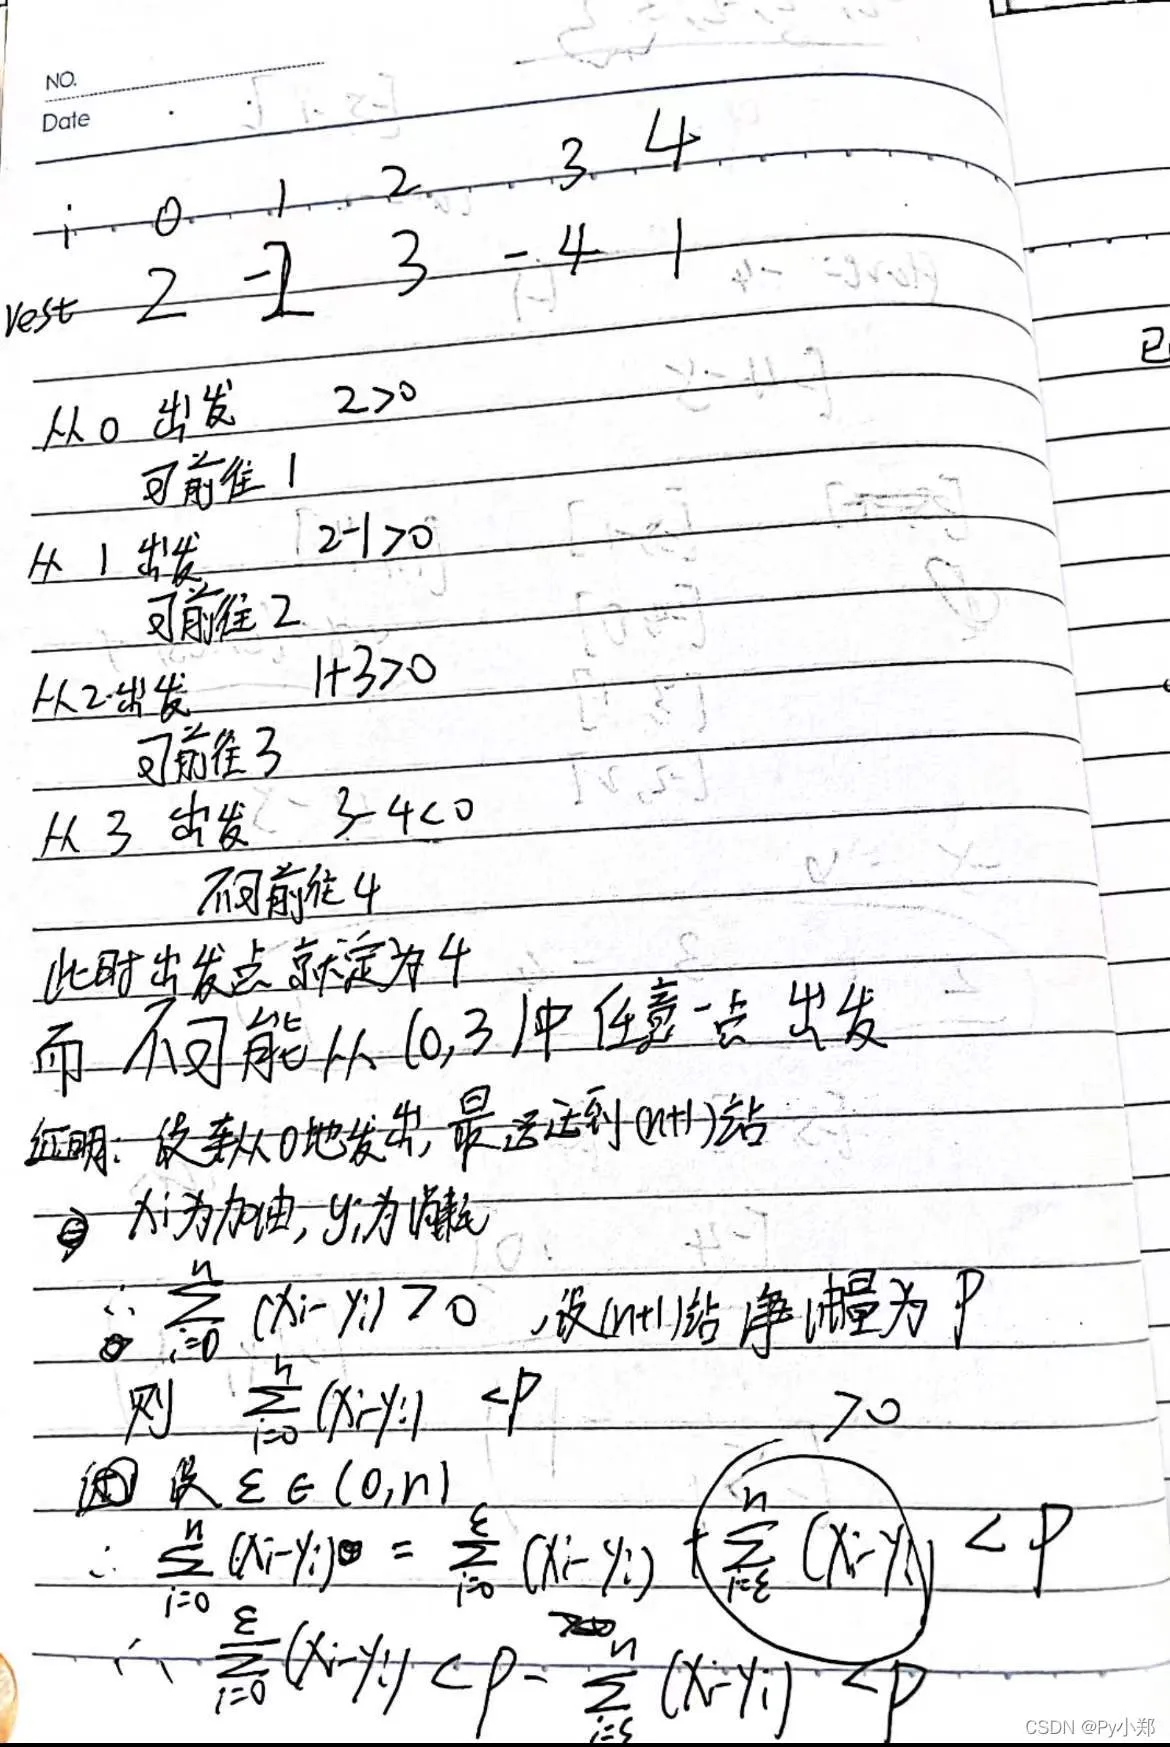 NO.
Date
i 0 1 2 3 4
rest 2 -1 3 -4 1
从0 出发 2>0
可前往1
从1出发 2-1>0
可前往2
从2出发 1+3>0
可前往3
从3 出发 3-4<0
不可前往4
此时出发点就定为4
而不可能从(0,3)中任意一点出发
证明: 设车从0地发出,最远达到(n+1)站
xi为加油, yi为消耗
∴ ∑_{i=0}^{n} (xi-yi) >0 ,设(n+1)站净油量为P
则 ∑_{i=0}^{n} (xi-yi) <P
>0
设 ε∈(0,n)
∴ ∑_{i=0}^{n} (xi-yi) = ∑_{i=0}^{ε} (xi-yi) + ∑_{i=ε}^{n} (xi-yi) <P
∴ ∑_{i=0}^{ε} (xi-yi) <P- ∑_{i=ε}^{n} (xi-yi) <P
CSDN @Py小郑